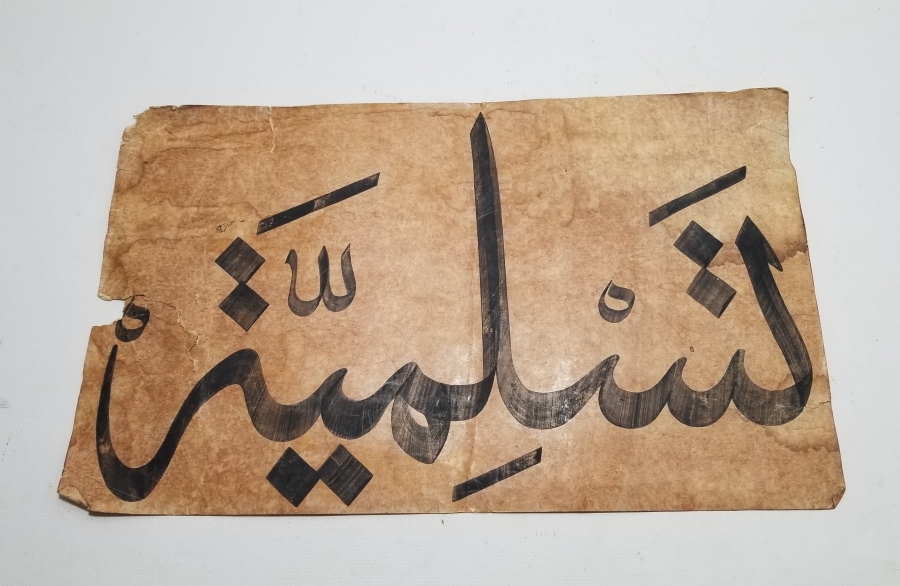 تَسْلِميَّةْ